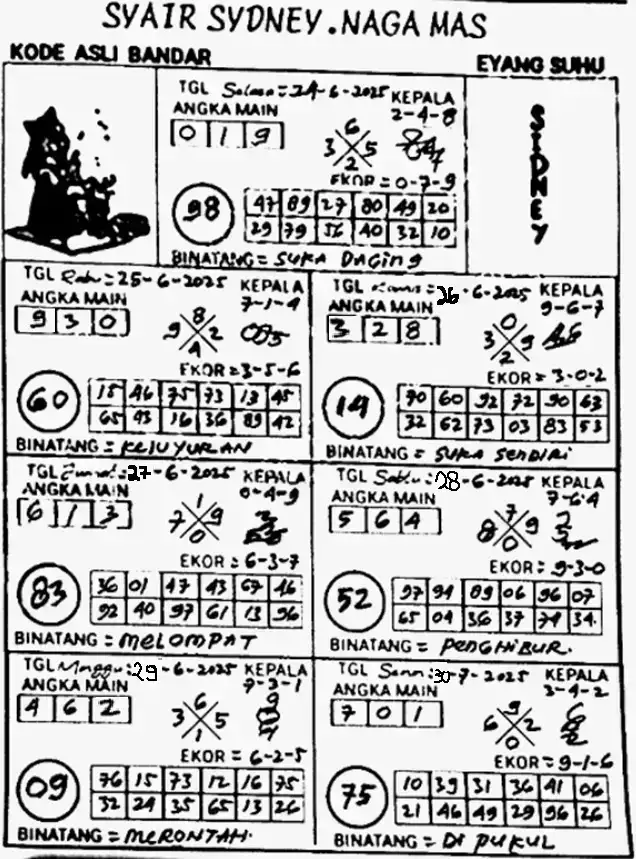 SYAIR SYDNEY.NAGA MAS
KODE ASLI BANDAR
EYANG SUHU
TGL Selasa = 24-6-2025 KEPALA
ANGKA MAIN 2-4-8
0 1 9
6
3 5
2
EKOR = 0-7-9
98
47 89 27 80 49 20
29 79 56 40 32 10
BINATANG = SUKA DAGING
SIDNEY
TGL Rabu = 25-6-2025 KEPALA
ANGKA MAIN 7-1-4
9 3 0
8
9 2
4
EKOR = 3-5-6
60
15 46 75 73 13 45
65 93 16 36 89 42
BINATANG = KEJUYURAN
TGL Kamis = 26-6-2025 KEPALA
ANGKA MAIN 9-6-7
3 2 8
0
3 9
2
EKOR = 3-0-2
14
90 60 92 72 90 63
32 62 73 03 83 53
BINATANG = SUKA SENDIRI
TGL Jumat : 27-6-2025 KEPALA
ANGKA MAIN 0-4-9
6 1 3
1
7 9
0
EKOR : 6-3-7
83
36 01 47 43 67 46
92 40 97 61 13 96
BINATANG = MELOMPAT
TGL Sabtu : 28-6-2025 KEPALA
ANGKA MAIN 7-6-4
5 6 4
7
8 9
0
EKOR : 9-3-0
52
97 94 09 06 96 07
65 04 36 37 74 34
BINATANG = PENGHIBUR.
TGL Minggu : 29-6-2025 KEPALA
ANGKA MAIN 7-3-1
4 6 2
6
3 5
1
EKOR = 6-2-5
09
76 15 73 12 16 75
32 24 35 65 13 26
BINATANG = MERONTAH.
TGL Senin : 30-7-2025 KEPALA
ANGKA MAIN 3-4-2
7 0 1
9
6 2
0
EKOR = 9-1-6
75
10 39 31 36 41 06
21 46 49 29 96 26
BINATANG = DI PUKUL